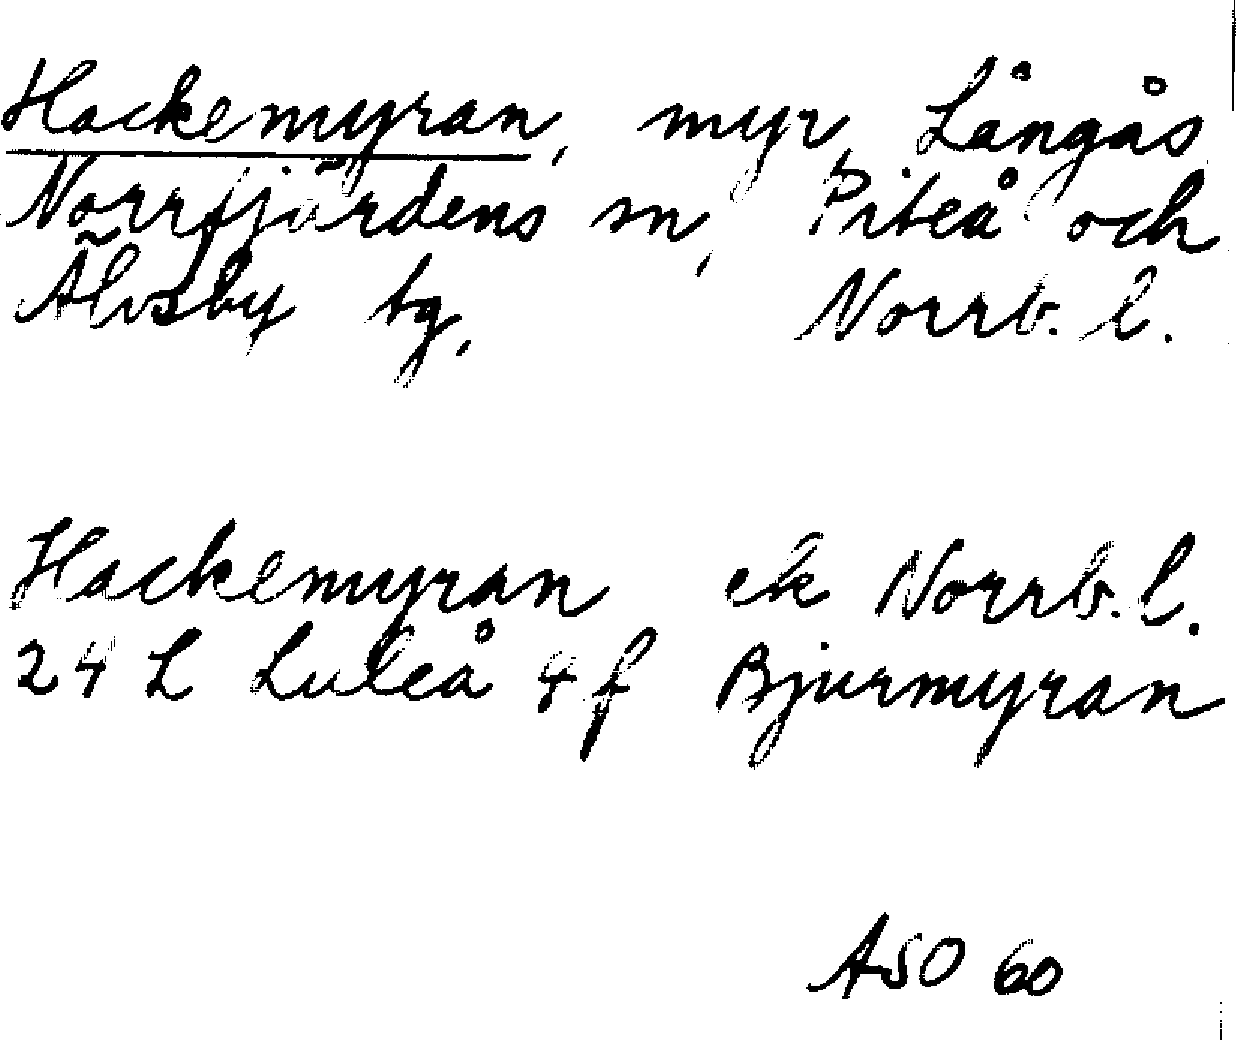 Hackemyran, myr, Långås
Norrfjärdens sn, Piteå och
Älvsby tg, Norrb. l.
Hackemyran ek Norrb. l.
24 L Luleå 4 f Bjurmyran
ASO 60